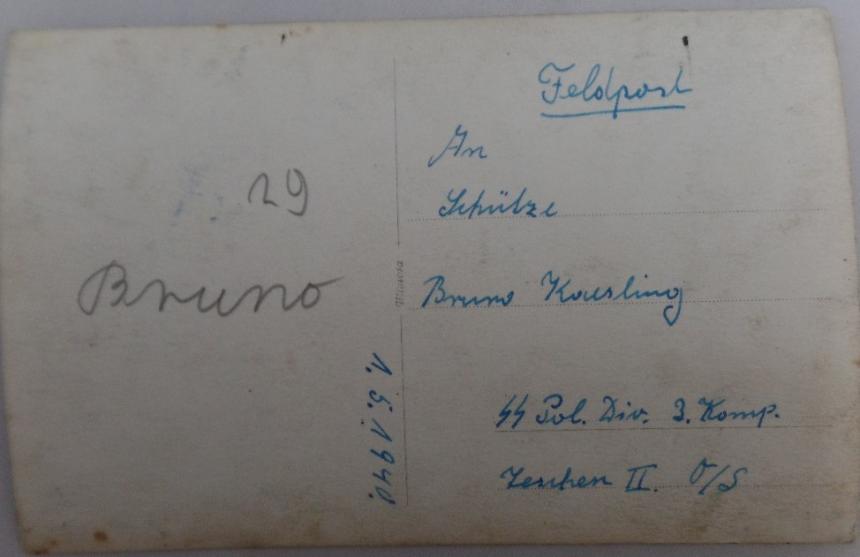 29
Bruno
Mimosa
1.5.1940.
Feldpost
An
Schütze
Bruno Kaesling
SS Pol. Div. 3. Komp.
Teschen II. O/S